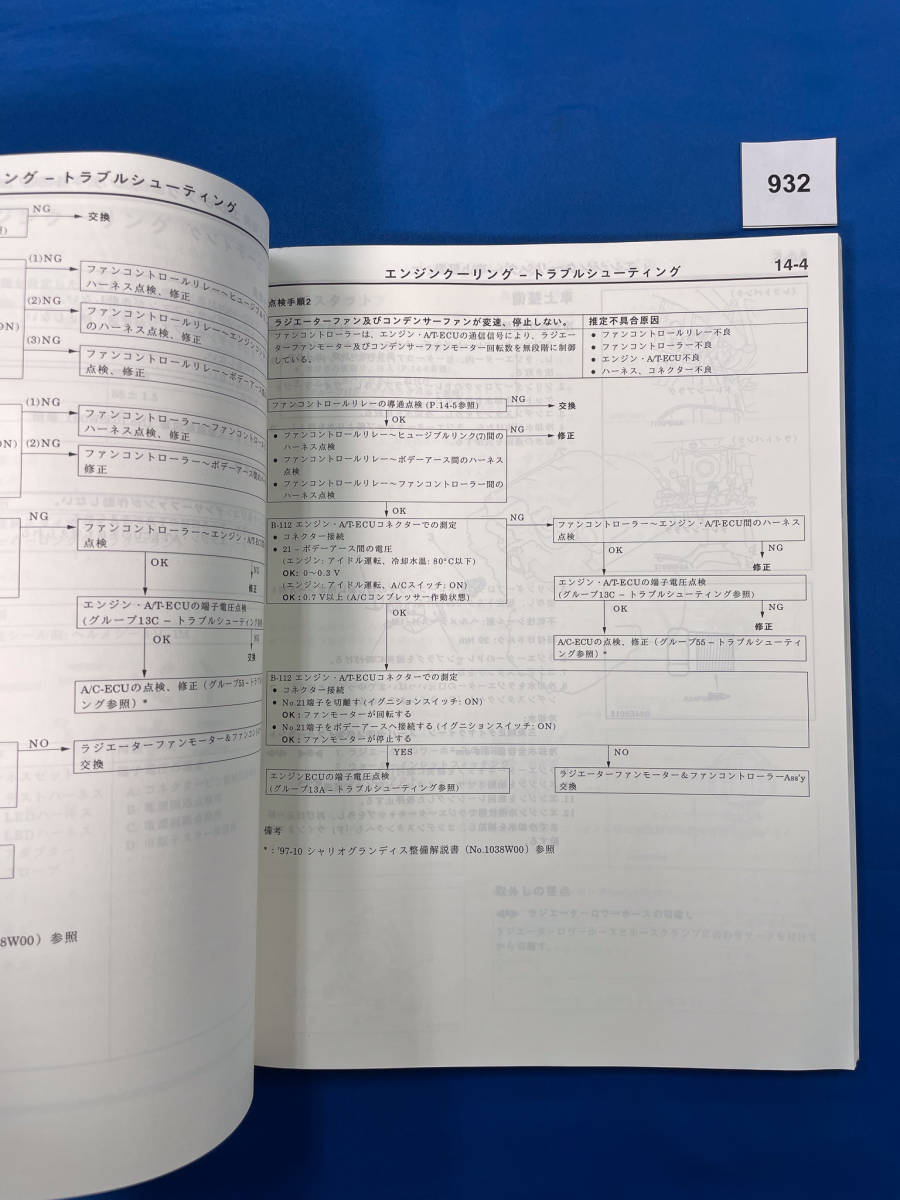 932
ング－トラブルシューティング
NG
交換
(1)NG
ファンコントロールリレー～ヒュージブル
ハーネス点検、修正
(2)NG
ファンコントロールリレー～エンジン
のハーネス点検、修正
ON)
(3)NG
ファンコントロールリレー～ボデーアース
点検、修正
(1)NG
ファンコントローラー～ファンコント
ハーネス点検、修正
ON)
(2)NG
ファンコントローラー～ボデーアース間の
修正
NG
ファンコントローラー～エンジン・A/T-EC
点検
OK
NG
修正
エンジン・A/T-ECUの端子電圧点検
(グループ13C－トラブルシューティング
OK
NG
交換
A/C-ECUの点検、修正 (グループ55－トラブ
ング参照) *
NO
ラジエーターファンモーター＆ファンコン
交換
8W00) 参照
エンジンクーリング－トラブルシューティング
14-4
点検手順2
ラジエーターファン及びコンデンサーファンが変速、停止しない。
推定不具合原因
ファンコントローラーは、エンジン・A/T-ECUの通信信号により、ラジエー
ターファンモーター及びコンデンサーファンモーター回転数を無段階に制御
している。
● ファンコントロールリレー不良
● ファンコントローラー不良
● エンジン・A/T-ECU不良
● ハーネス、コネクター不良
ファンコントロールリレーの導通点検 (P.14-5参照)
NG
交換
OK
● ファンコントロールリレー～ヒュージブルリンク(7)間の
ハーネス点検
● ファンコントロールリレー～ボデーアース間のハーネス
点検
● ファンコントロールリレー～ファンコントローラー間の
ハーネス点検
NG
修正
OK
B-112 エンジン・A/T-ECUコネクターでの測定
● コネクター接続
● 21－ボデーアース間の電圧
(エンジン: アイドル運転、冷却水温: 80°C以下)
OK: 0～0.3 V
(エンジン: アイドル運転、A/Cスイッチ: ON)
OK: 0.7 V以上 (A/Cコンプレッサー作動状態)
NG
ファンコントローラー～エンジン・A/T-ECU間のハーネス
点検
OK
NG
修正
エンジン・A/T-ECUの端子電圧点検
(グループ13C－トラブルシューティング参照)
OK
NG
修正
A/C-ECUの点検、修正 (グループ55－トラブルシューティ
ング参照) *
OK
B-112 エンジン・A/T-ECUコネクターでの測定
● コネクター接続
● No.21端子を切離す (イグニションスイッチ: ON)
OK: ファンモーターが回転する
● No.21端子をボデーアースへ接続する (イグニションスイッチ: ON)
OK: ファンモーターが停止する
YES
NO
エンジンECUの端子電圧点検
(グループ13A－トラブルシューティング参照)
ラジエーターファンモーター＆ファンコントローラーAss'y
交換
備考
*: '97-10 シャリオグランディス整備解説書 (No.1038W00) 参照